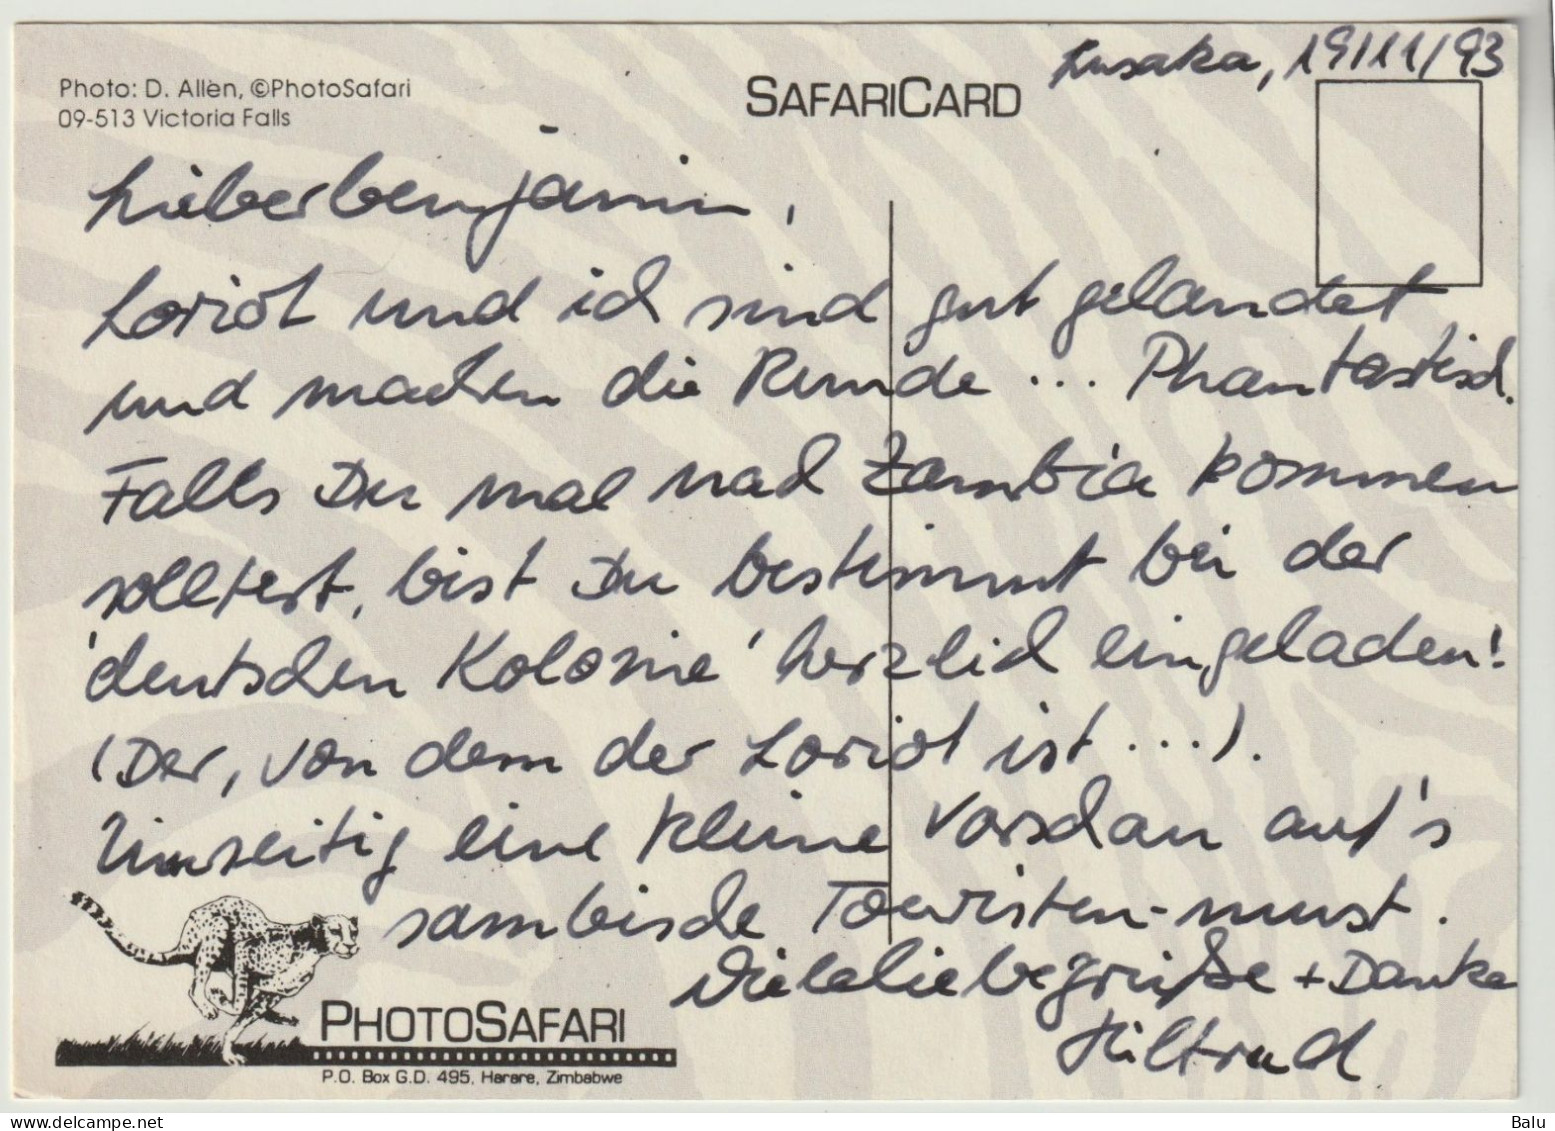 Lusaka, 19/11/93
Photo: D. Allèn, ©PhotoSafari
09-513 Victoria Falls
SAFARICARD
Lieber Benjamin,
Loriot und ich sind gut gelandet
und machen die Runde ... Phantastisch.
Falls Du mal nach Zambia kommen
solltest, bist Du bestimmt bei der
'deutschen Kolonie' herzlich eingeladen!
(Der, von dem der Loriot ist ...).
Umseitig eine kleine Vorschau auf's
sambische Touristen-must.
Viele liebe Grüße + Danke
Hiltrud
PHOTOSAFARI
P.O. Box G.D. 495, Harare, Zimbabwe
Balu